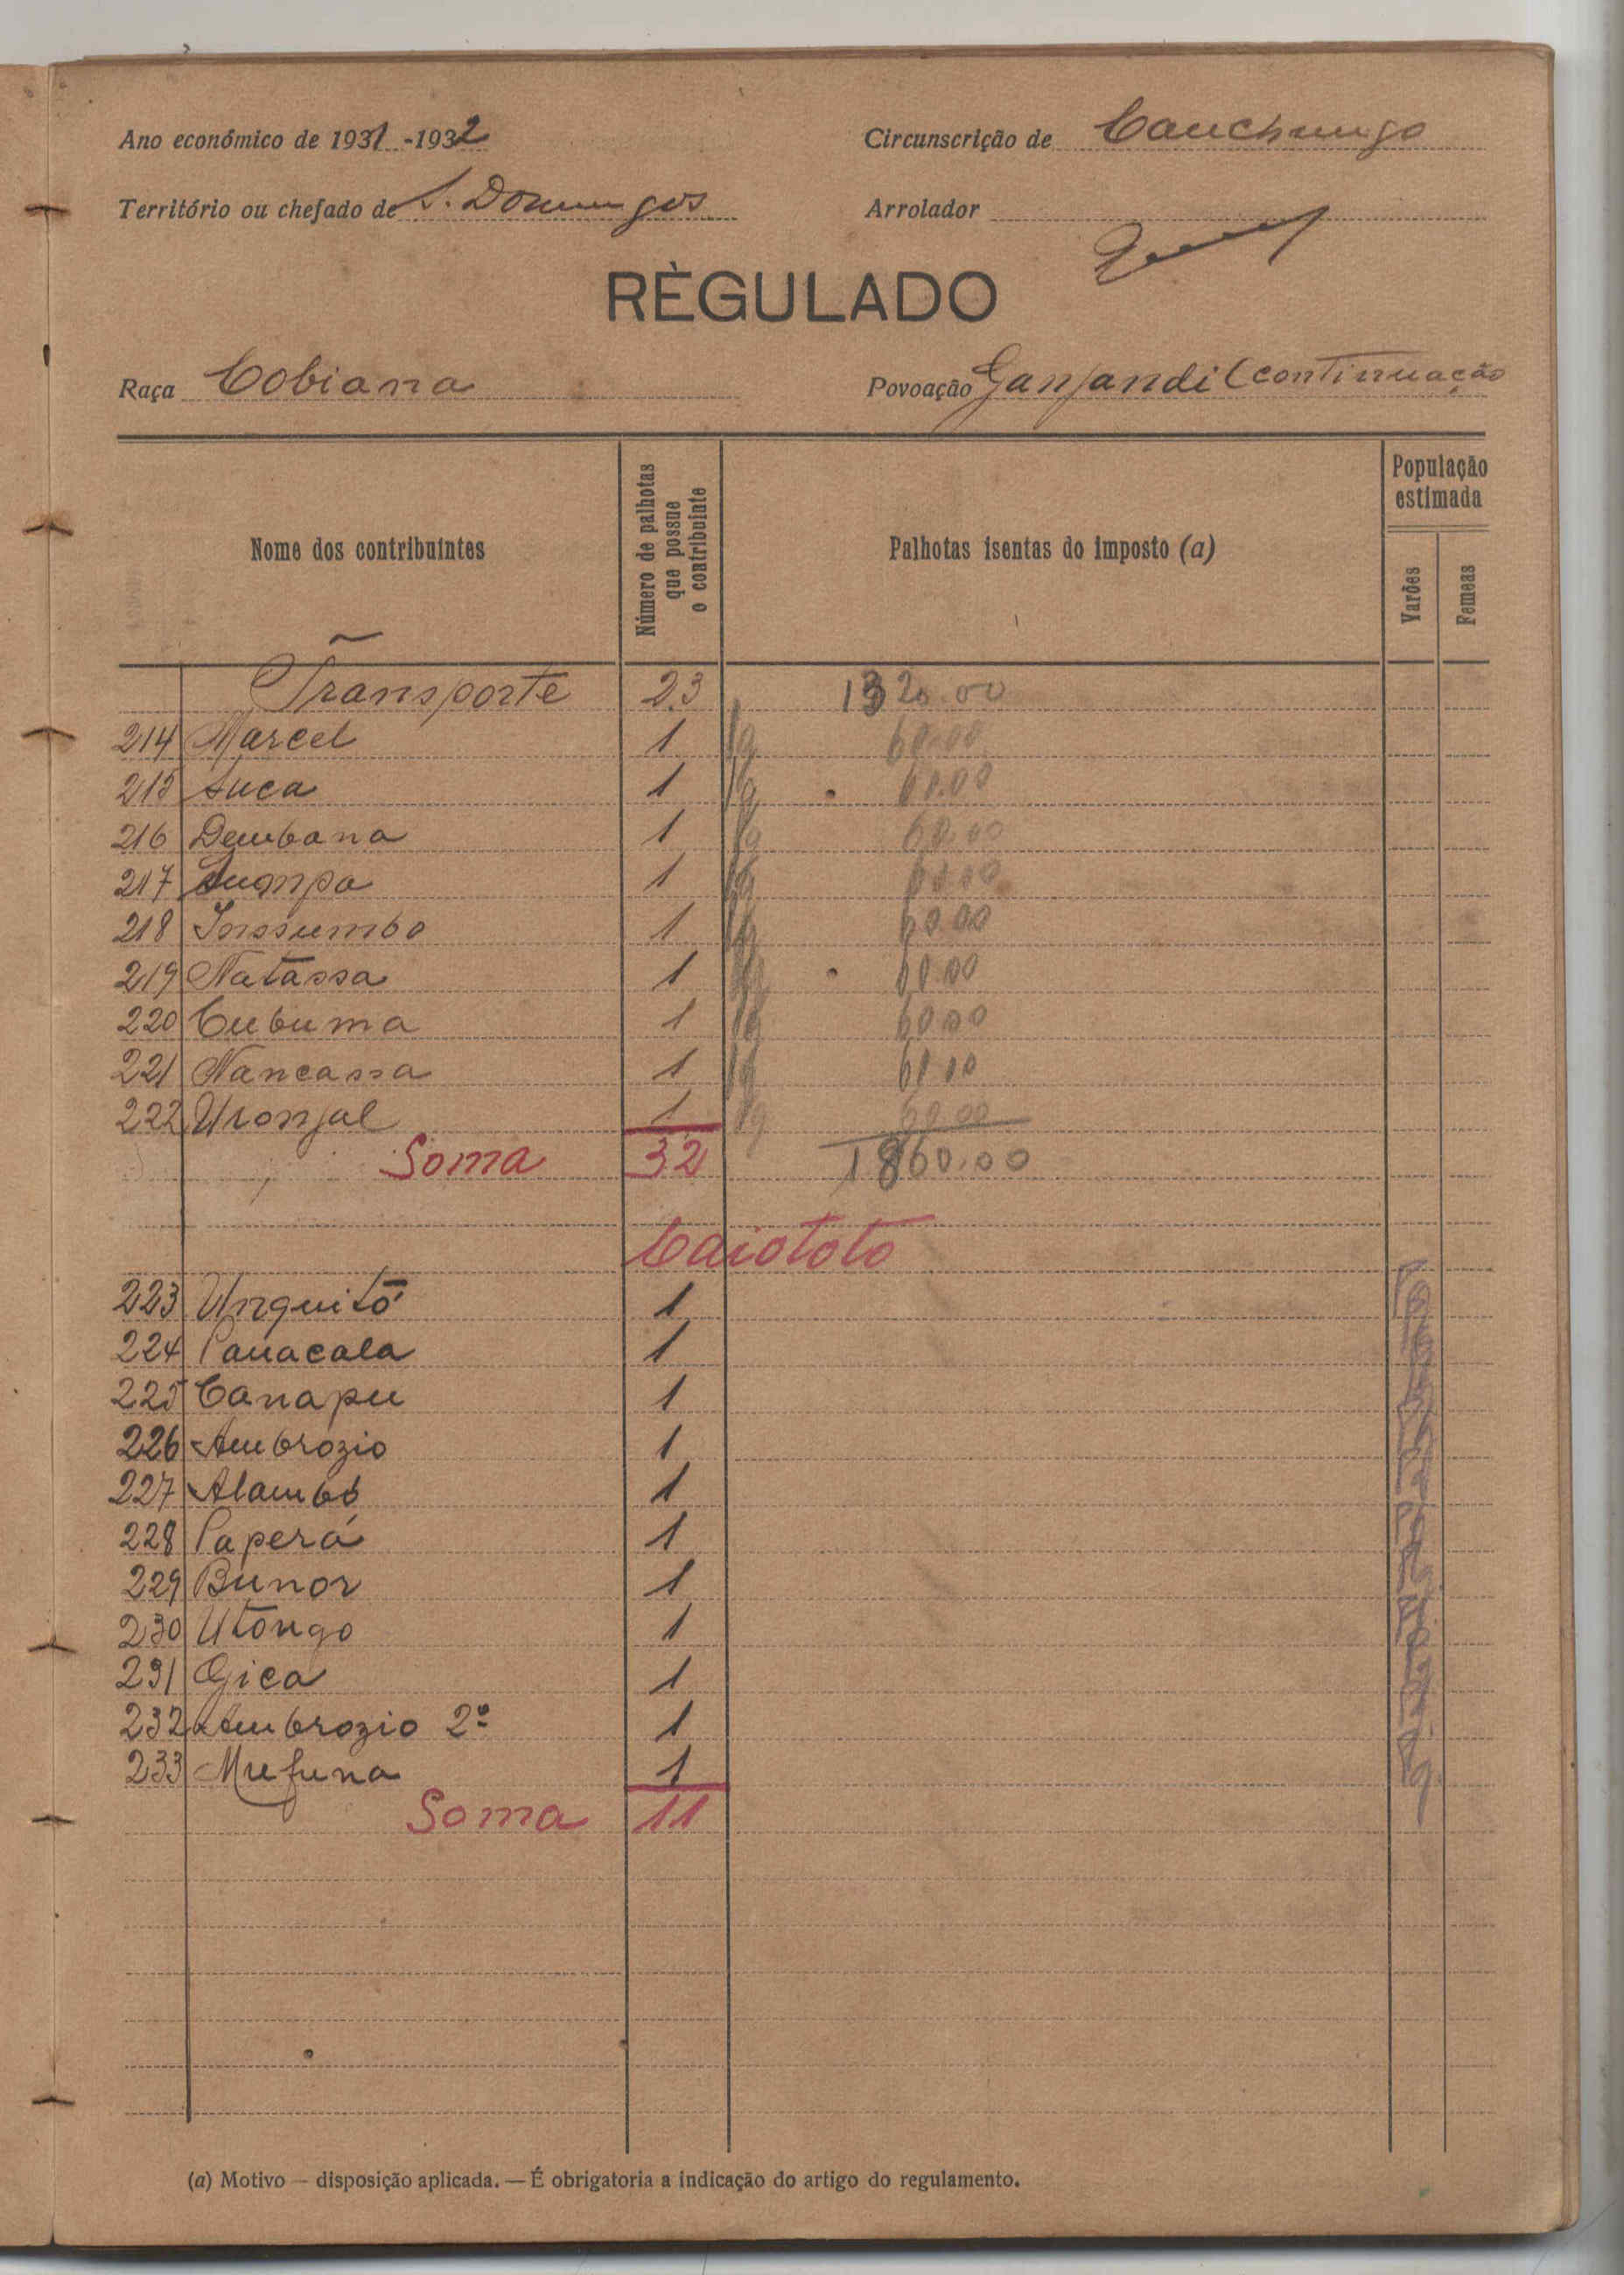 Ano económico de 1931-1932
Circunscrição de Canchungo
Território ou chefado de S. Domingos
Arrolador
RÈGULADO
Raça Cobiana
Povoação Ganjandi (continuação
Nome dos contribuintes
Número de palhotas que possue o contribuinte
Palhotas isentas do imposto (a)
População estimada
Varões
Femeas
Transporte 23 1320.00
214 Marcel 1 60.00
215 Suca 1 60.00
216 Dembana 1 60.00
217 Sumpa 1 60.00
218 Inssumbo 1 60.00
219 Natassa 1 60.00
220 Cubuma 1 60.00
221 Nancassa 1 60.00
222 Uronjal 1 60.00
Soma 32 1860.00
Caiototo
223 Unquitó 1
224 Panacala 1
225 Canapu 1
226 Ambrozio 1
227 Alambó 1
228 Paperá 1
229 Bunor 1
230 Utongo 1
231 Gica 1
232 Ambrozio 2º 1
233 Mufuna 1
Soma 11
(a) Motivo — disposição aplicada. — É obrigatoria a indicação do artigo do regulamento.